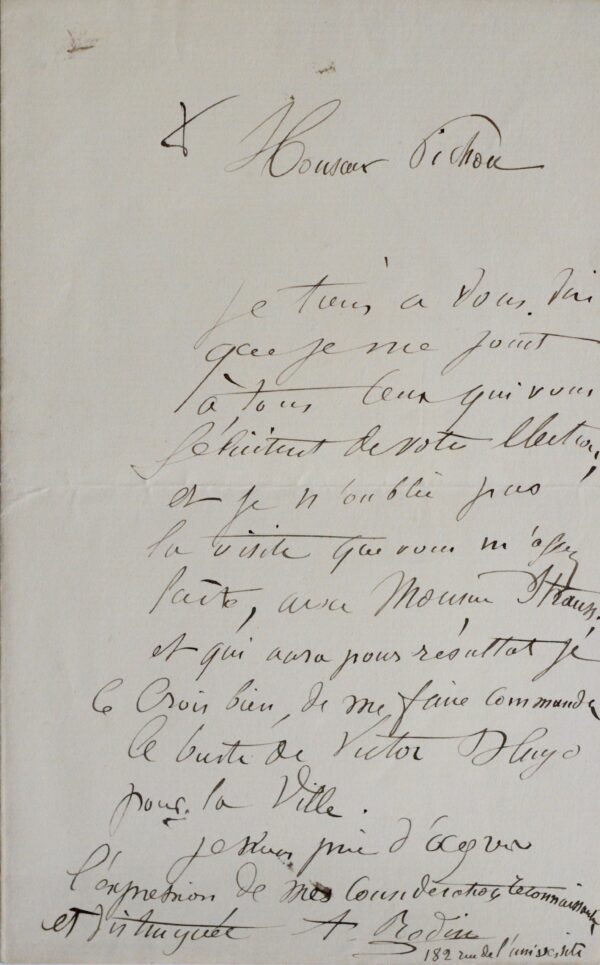 Monsieur Pichon
je tiens à vous dire
que je me joint
à tous ceux qui vous
félicitent de votre élection,
et je n'oublie pas
la visite que vous m'avez
faite, avec Monsieur Strauss.
et qui aura pour résultat je
le crois bien, de me faire commander
le buste de Victor Hugo
pour la Ville.
je vous prie d'agréer
l'expression de mes considération reconnaissante
et distinguée A. Rodin
182 rue de l'université